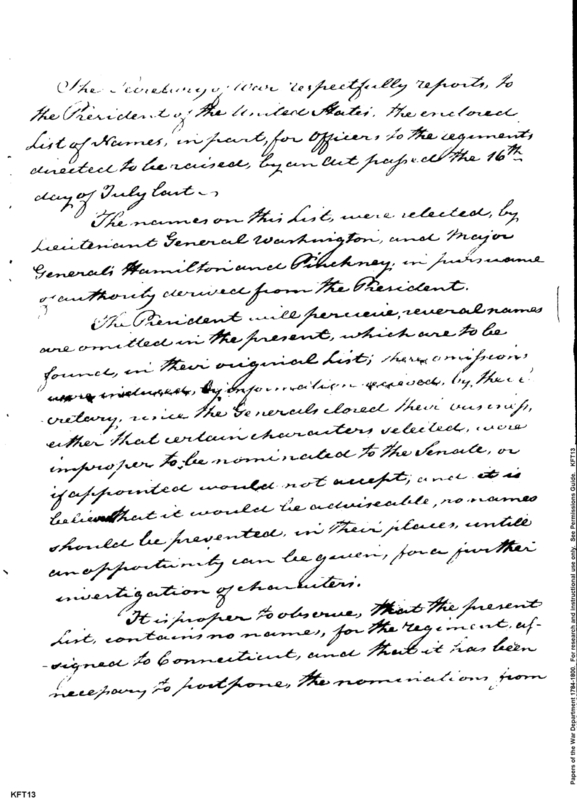 The Secretary of War respectfully reports, to
the President of the United States, the enclosed
List of Names, in part, for Officers to the regiments
directed to be raised, by an Act passed the 16th
day of July last.
The names on this List, were selected, by
Lieutenant General Washington, and Major
Generals Hamilton and Pinckney, in pursuance
of authority derived from the President.
The President will percieve, several names
are omitted in the present, which are to be
found, in their original List; these omissions
were induced, by information recieved, by the Se
cretary, since the Generals closed their business,
either that certain characters selected, were
improper to be nominated to the Senate, or
if appointed would not accept; and it is
believed that it would be adviseable, no names
should be presented, in their places, untill
an opportunity can be given, for a further
investigation of characters.
It is proper to observe, that the present
List, contains no names, for the regiment, as-
-signed to Connecticut, and that it has been
necessary to postpone, the nominations from
KFT13
Papers of the War Department 1784-1800. For research and instructional use only. See Permissions Guide. KFT13